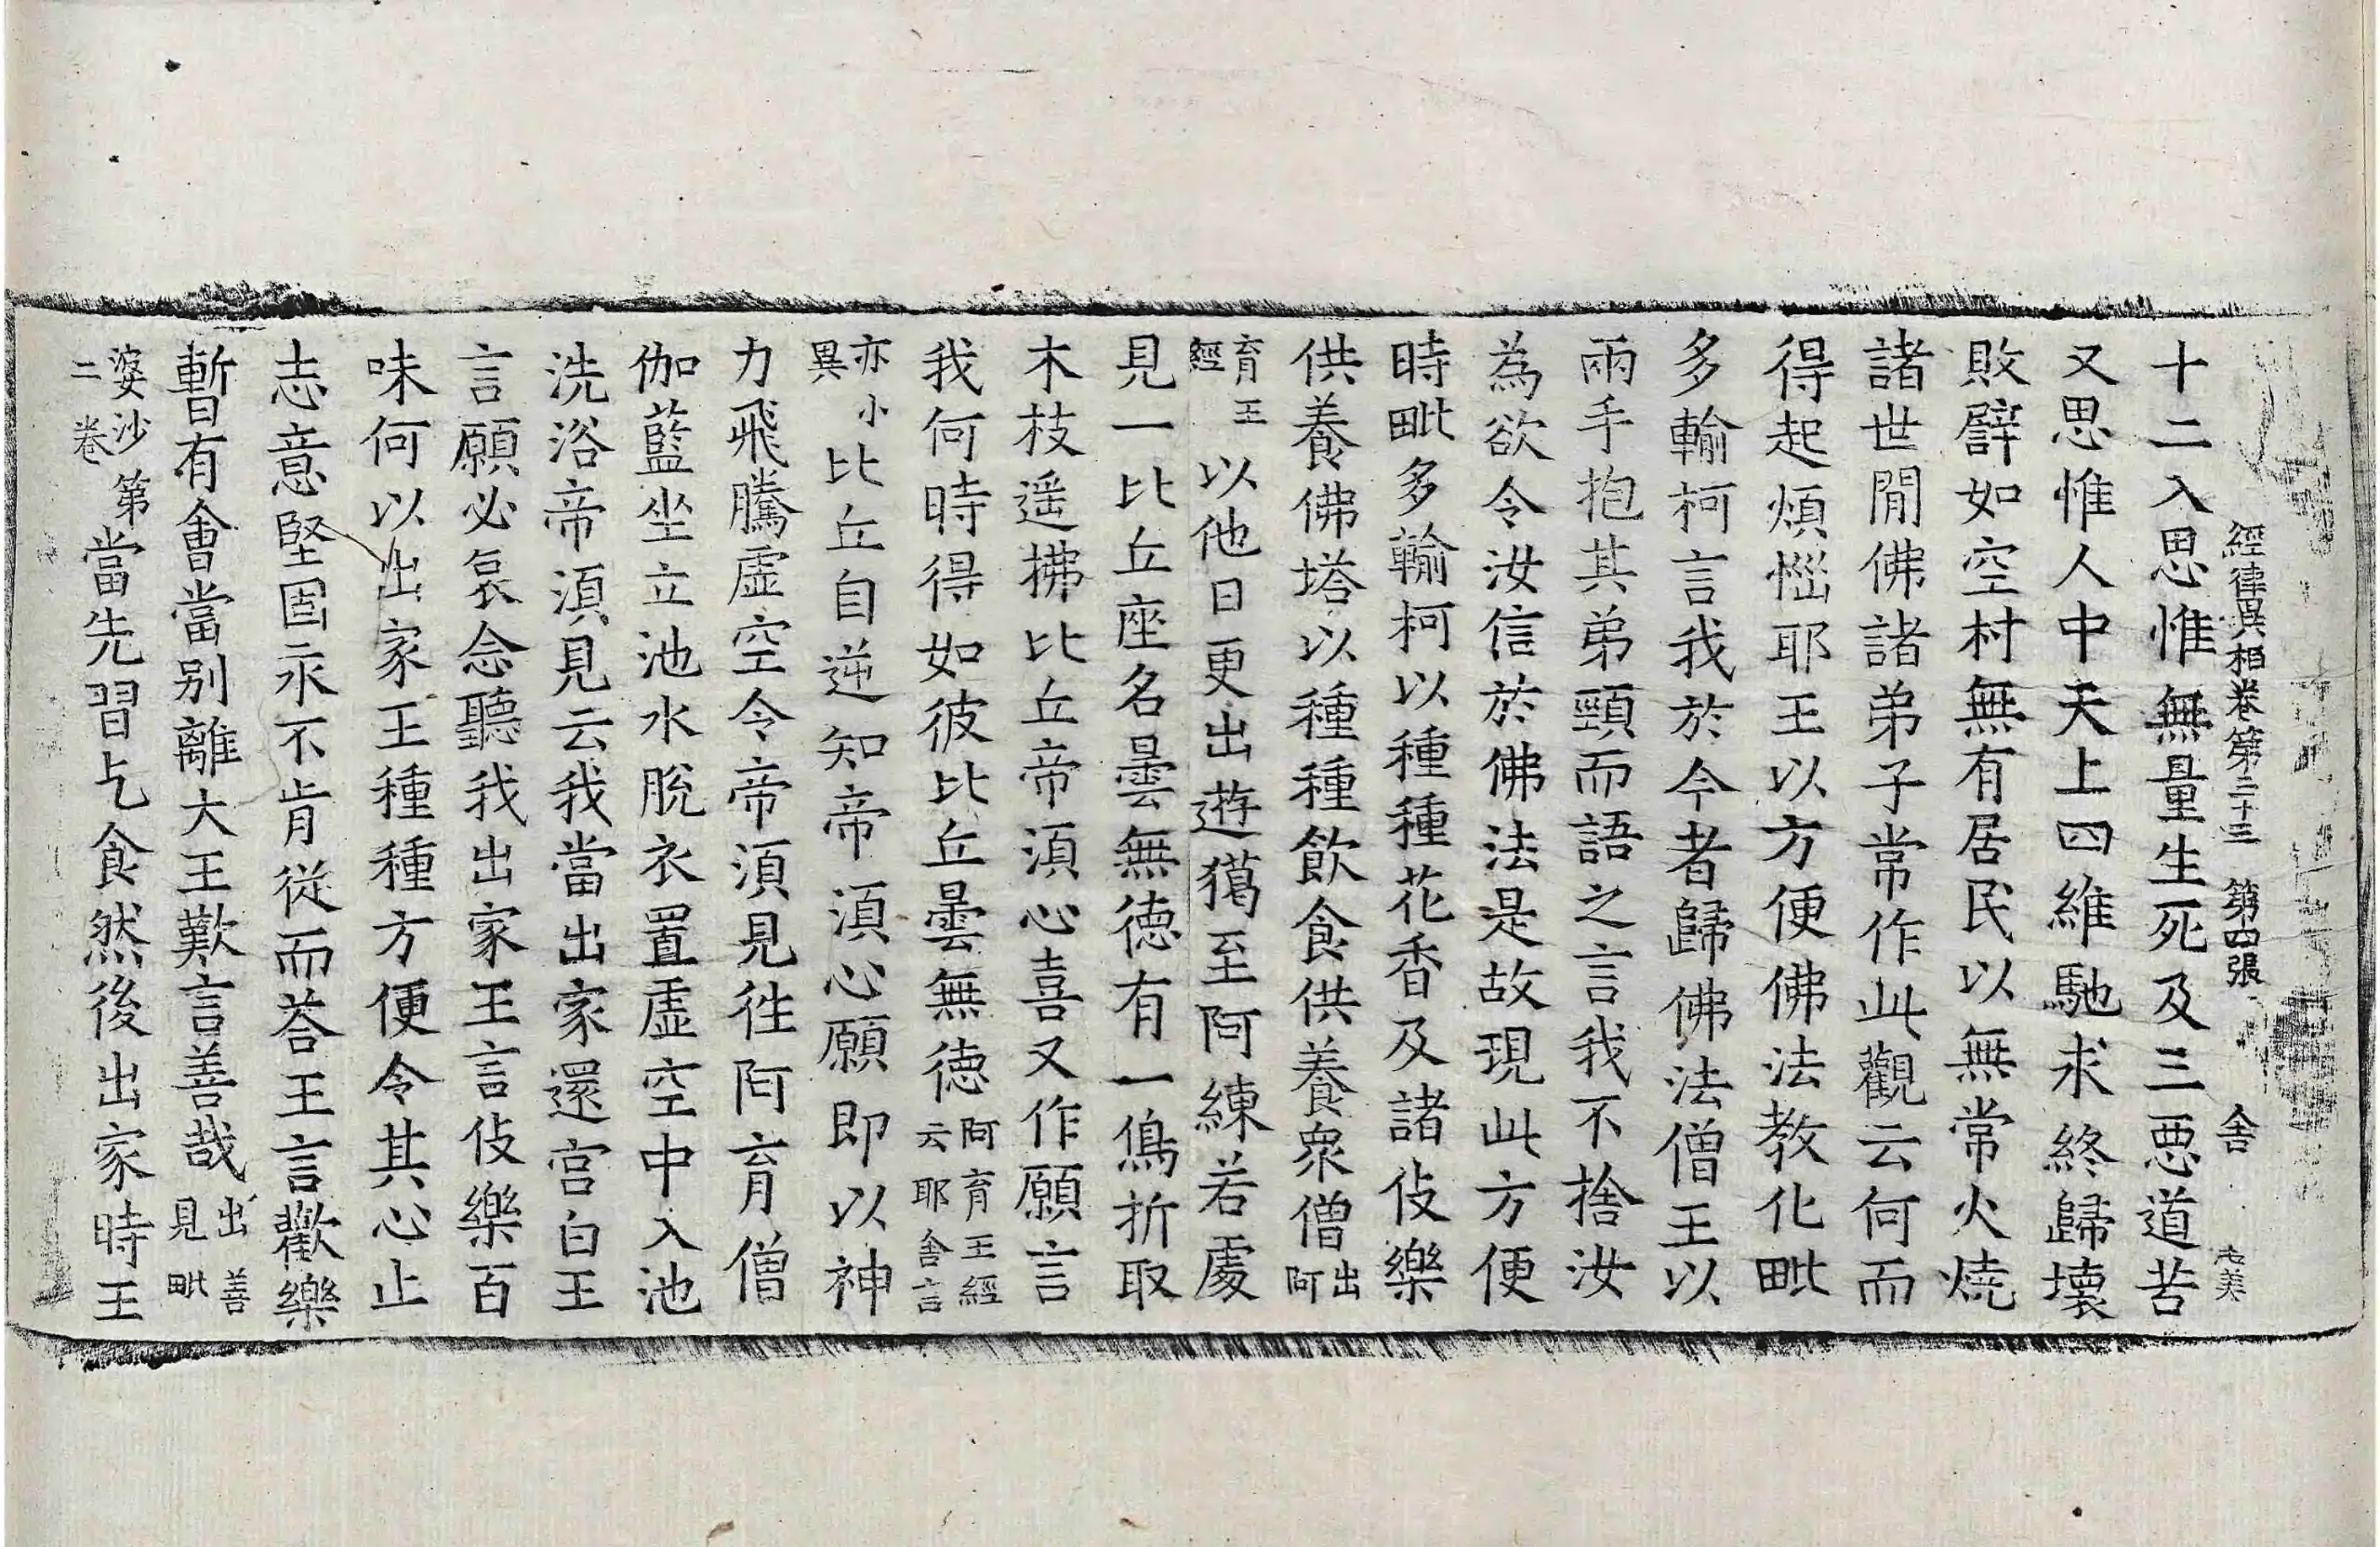 經律異相卷第二十三　第四張　舍　志美
十二入思惟無量生死及三惡道苦
又思惟人中天上四維馳求終歸壞
敗譬如空村無有居民以無常火燒
諸世閒佛諸弟子常作此觀云何而
得起煩惱耶王以方便佛法教化毗
多輸柯言我於今者歸佛法僧王以
兩手抱其弟頸而語之言我不捨汝
為欲令汝信於佛法是故現此方便
時毗多輸柯以種種花香及諸伎樂
供養佛塔以種種飲食供養衆僧出阿
育王經以他日更出遊獦至阿練若處
見一比丘座名曇無德有一鳥折取
木枝遥拂比丘帝湏心喜又作願言
我何時得如彼比丘曇無德阿育王經云耶舍言
亦小異比丘自逆知帝湏心願即以神
力飛騰虛空令帝湏見徃阿育僧
伽藍坐立池水脫衣置虛空中入池
洗浴帝湏見云我當出家還宫白王
言願必哀念聽我出家王言伎樂百
味何以出家王種種方便令其心止
志意堅固永不肯從而荅王言歡樂
暫有會當别離大王歎言善哉出善見毗
婆沙第二卷當先習乞食然後出家時王